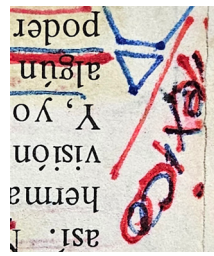 así.
herma
visión
Y, yo
algún
poder